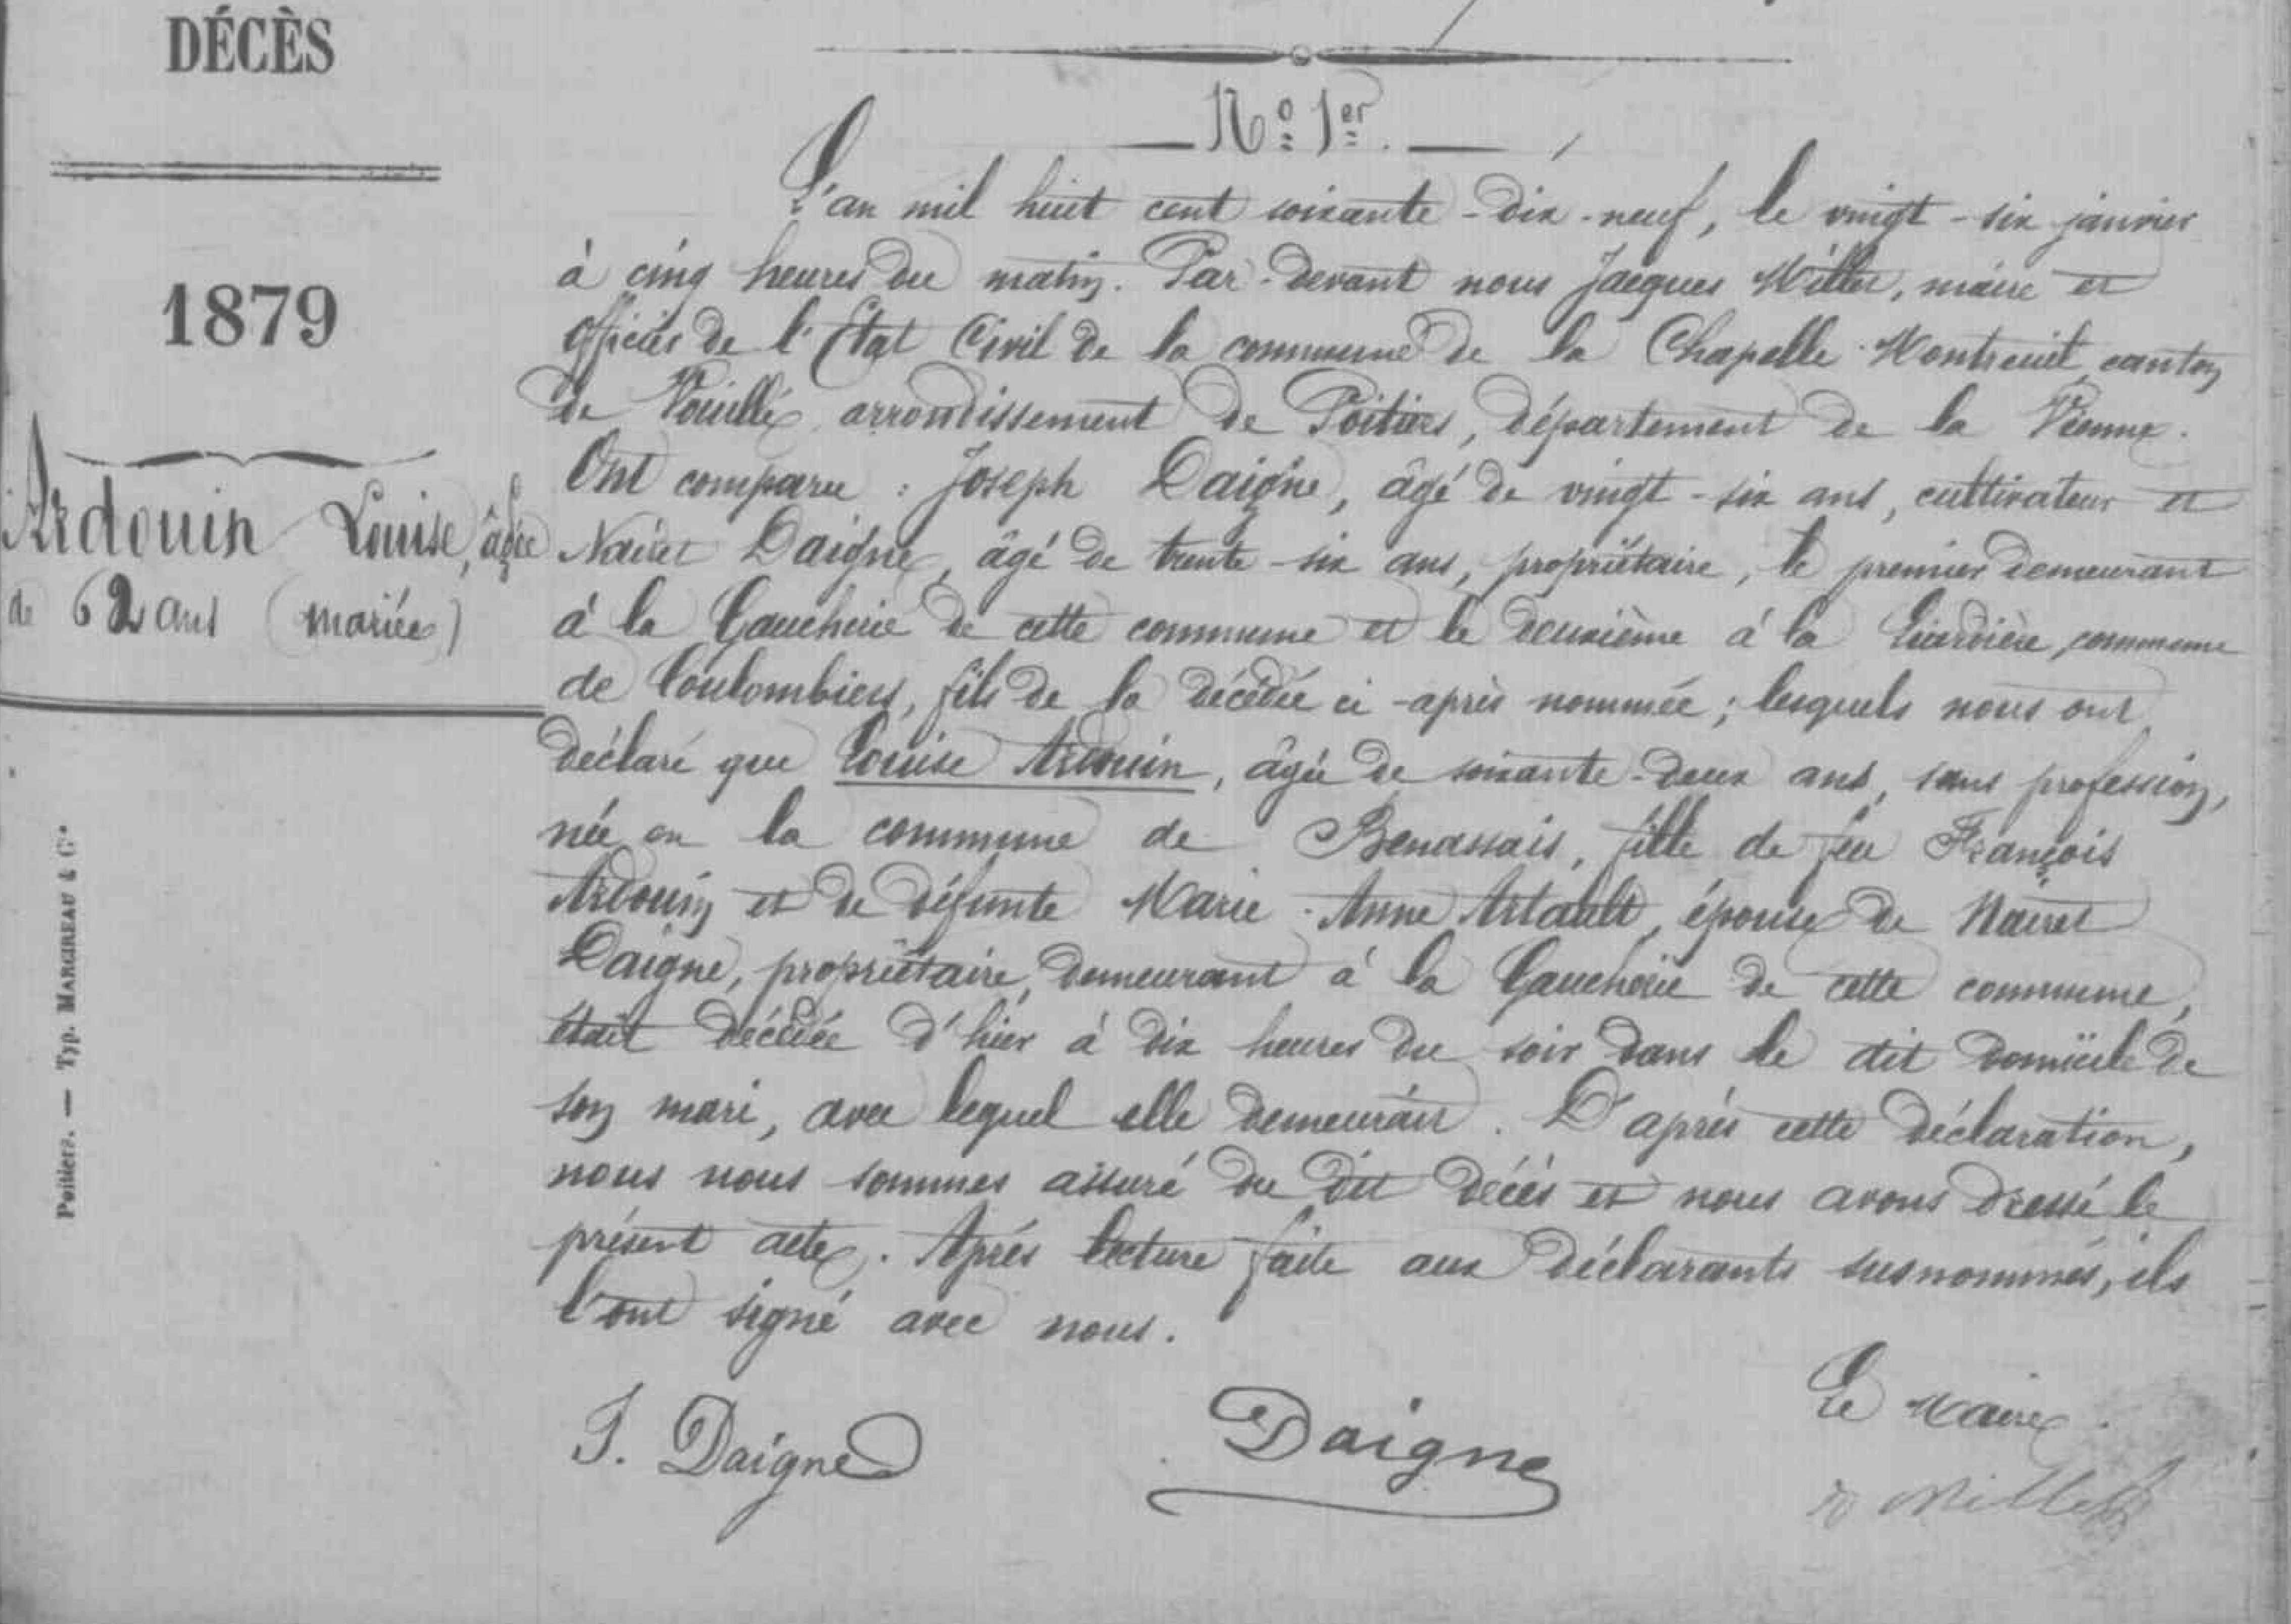 DÉCÈS
1879
Ardouin Louise, âgée
de 62 ans (mariée)
Poitiers. — Typ. MARCIREAU & Cie
No 1er.
L'an mil huit cent soixante-dix-neuf, le vingt-six janvier
à cinq heures du matin. Par-devant nous Jacques Millet, maire et
officier de l'Etat Civil de la commune de la Chapelle-Montreuil, canton
de Vouillé, arrondissement de Poitiers, département de la Vienne.
Ont comparu : Joseph Daigne, âgé de vingt-six ans, cultivateur et
Nairet Daigne, âgé de trente-six ans, propriétaire, le premier demeurant
à la Gaucherie de cette commune et le deuxième à la commune
de Coulombiers, fils de la décédée ci-après nommée ; lesquels nous ont
déclaré que Louise Ardouin, âgée de soixante-deux ans, sans profession,
née en la commune de Benassais, fille de feu François
Ardouin et de défunte Marie-Anne Artault, épouse de Nairet
Daigne, propriétaire, demeurant à la Gaucherie de cette commune,
était décédée d'hier à dix heures du soir dans le dit domicile de
son mari, avec lequel elle demeurait. D'après cette déclaration,
nous nous sommes assuré du dit décès et nous avons dressé le
présent acte. Après lecture faite aux déclarants susnommés, ils
l'ont signé avec nous.
J. Daigne
Daigne
Le Maire.
Millet